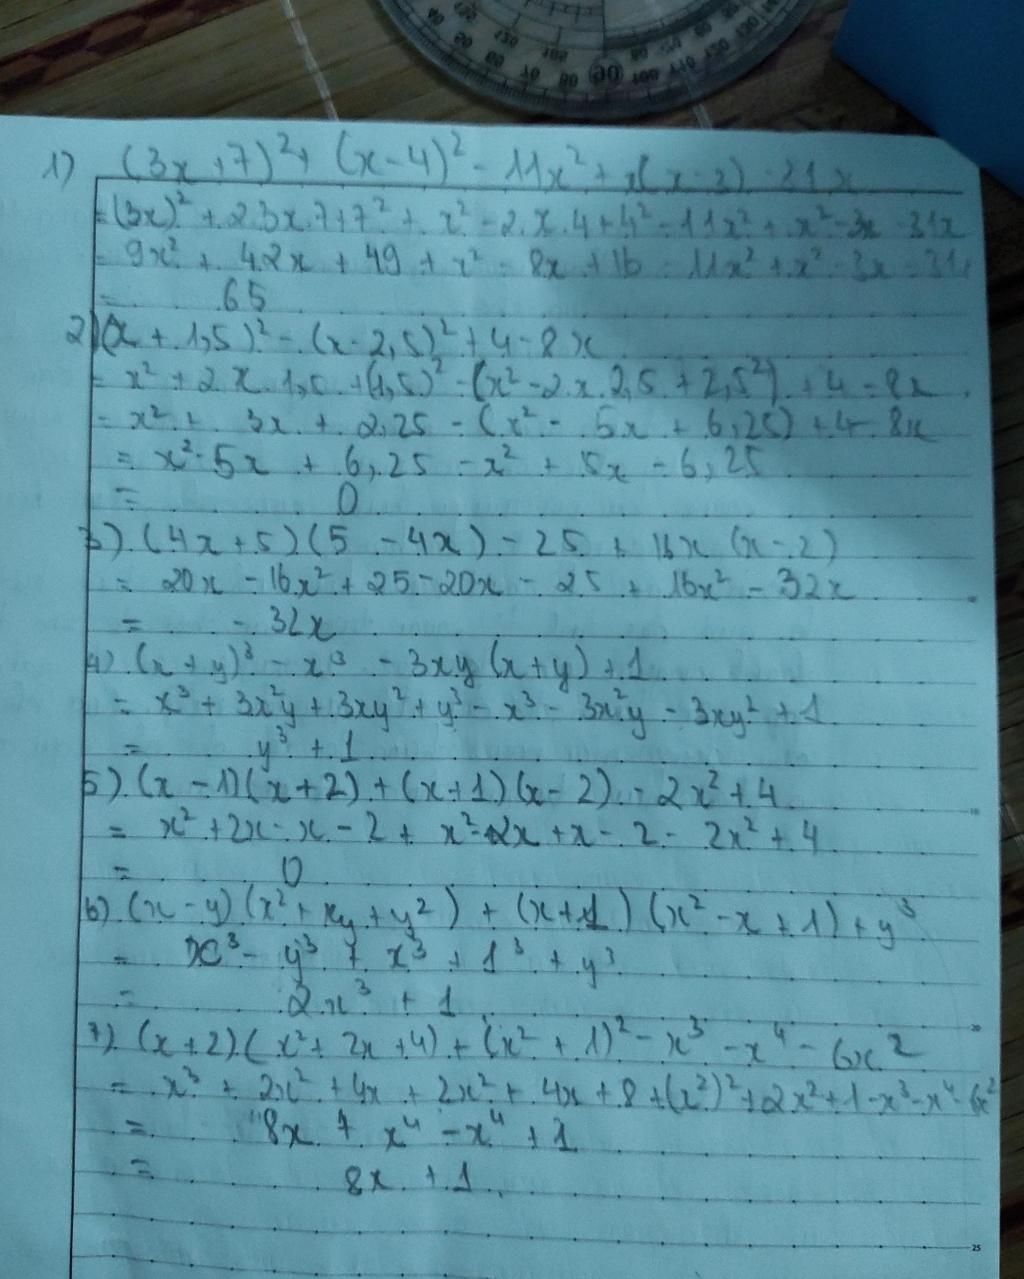 1) (3x + 7)² + (x - 4)² - 11x² + x(x - 3) - 31x
= (3x)² + 2.3x.7 + 7² + x² - 2.x.4 + 4² - 11x² + x² - 3x - 31x
= 9x² + 42x + 49 + x² - 8x + 16 - 11x² + x² - 3x - 31x
= 65
2) (x + 1,5)² - (x - 2,5)² + 4 - 8x
= x² + 2.x.1,5 + (1,5)² - (x² - 2.x.2,5 + 2,5²) + 4 - 8x
= x² + 3x + 2,25 - (x² - 5x + 6,25) + 4 - 8x
= x² - 5x + 6,25 - x² + 5x - 6,25
= 0
3) (4x + 5)(5 - 4x) - 25 + 16x (x - 2)
= 20x - 16x² + 25 - 20x - 25 + 16x² - 32x
= - 32x
4) (x + y)³ - x³ - 3xy (x + y) + 1
= x³ + 3x²y + 3xy² + y³ - x³ - 3x²y - 3xy² + 1
= y³ + 1
5) (x - 1)(x + 2) + (x + 1)(x - 2) - 2x² + 4
= x² + 2x - x - 2 + x² - 2x + x - 2 - 2x² + 4
= 0
6) (x - y)(x² + xy + y²) + (x + 1)(x² - x + 1) + y³
= x³ - y³ + x³ + 1³ + y³
= 2x³ + 1
7) (x + 2)(x² + 2x + 4) + (x² + 1)² - x³ - x⁴ - 6x²
= x³ + 2x² + 4x + 2x² + 4x + 8 + (x²)² + 2x² + 1 - x³ - x⁴ - 6x²
= 8x + x⁴ - x⁴ + 1
= 8x + 1
25